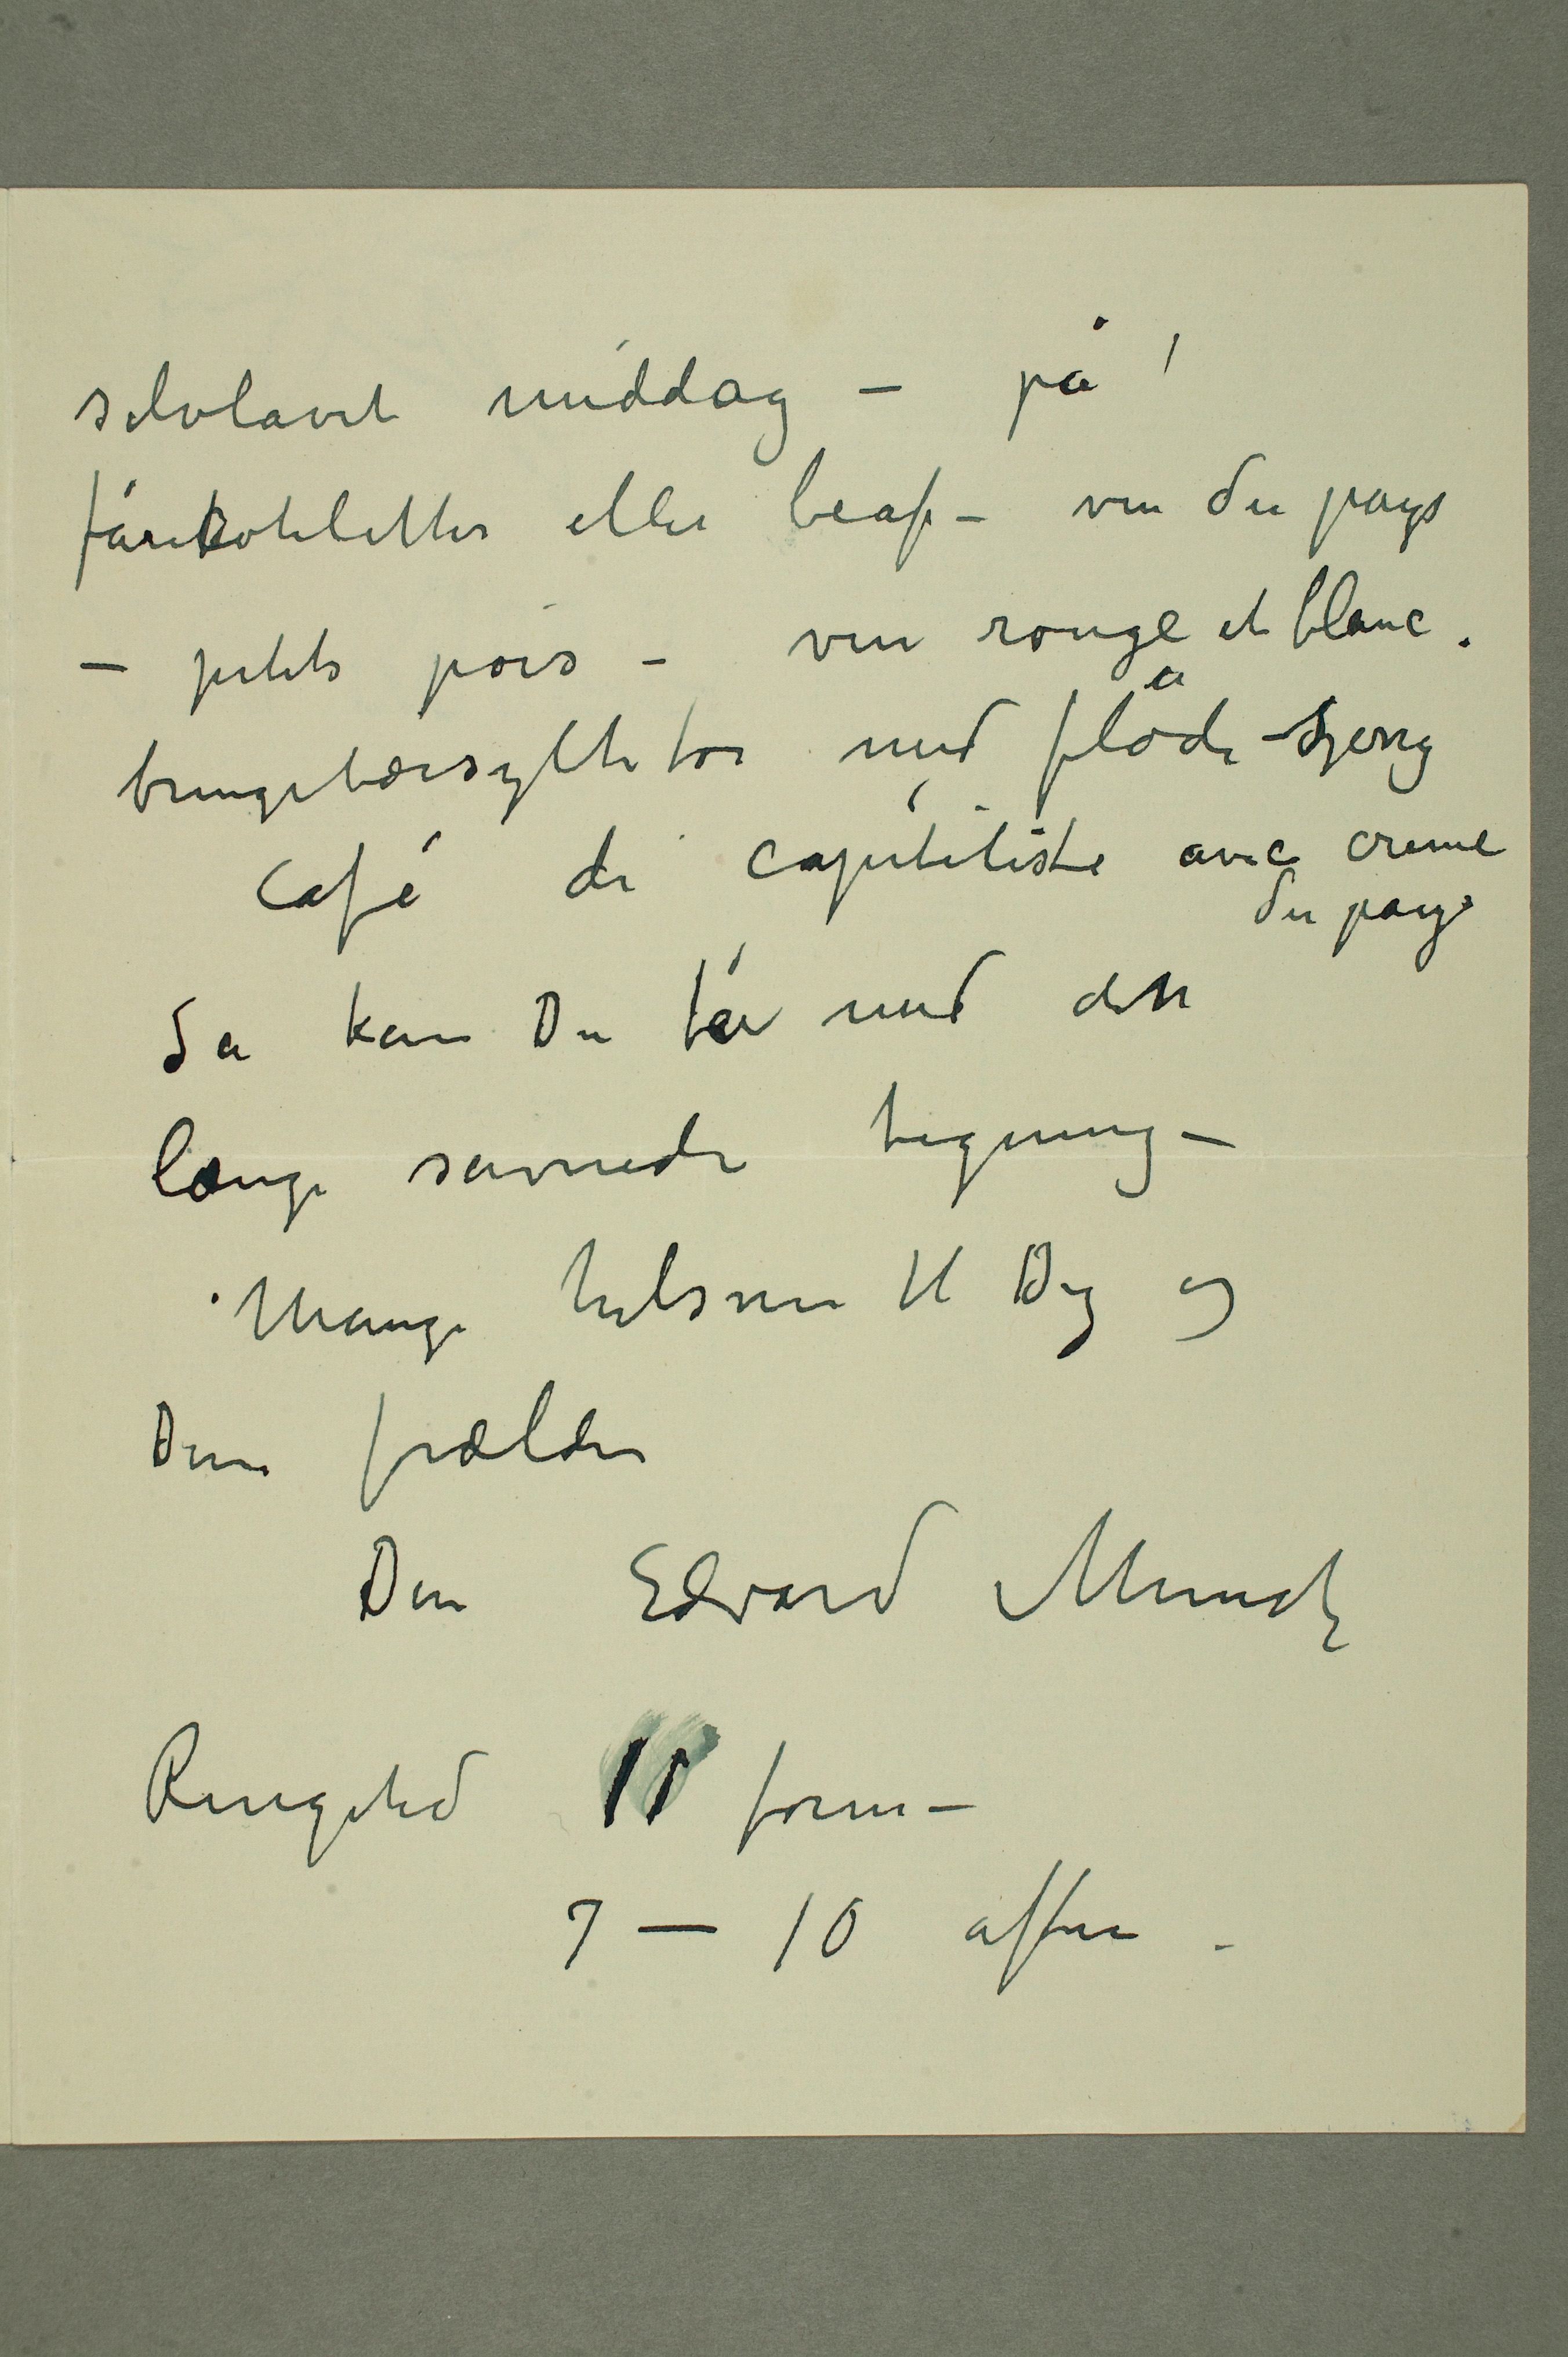 selvlavet middag – på!
fårekoteletter eller beaf – vin du pays
– petits pois – vin rouge et blanc.
bringebærsyltetøi med fløde
Café de capitéliste avec creme
du pays
Så kan Du få med den
længe savnede tegning –
Mange hilsner til Dig og
Dine forælder
Din Edvard Munch
Ringetid 11 form –
7 – 10 aften –